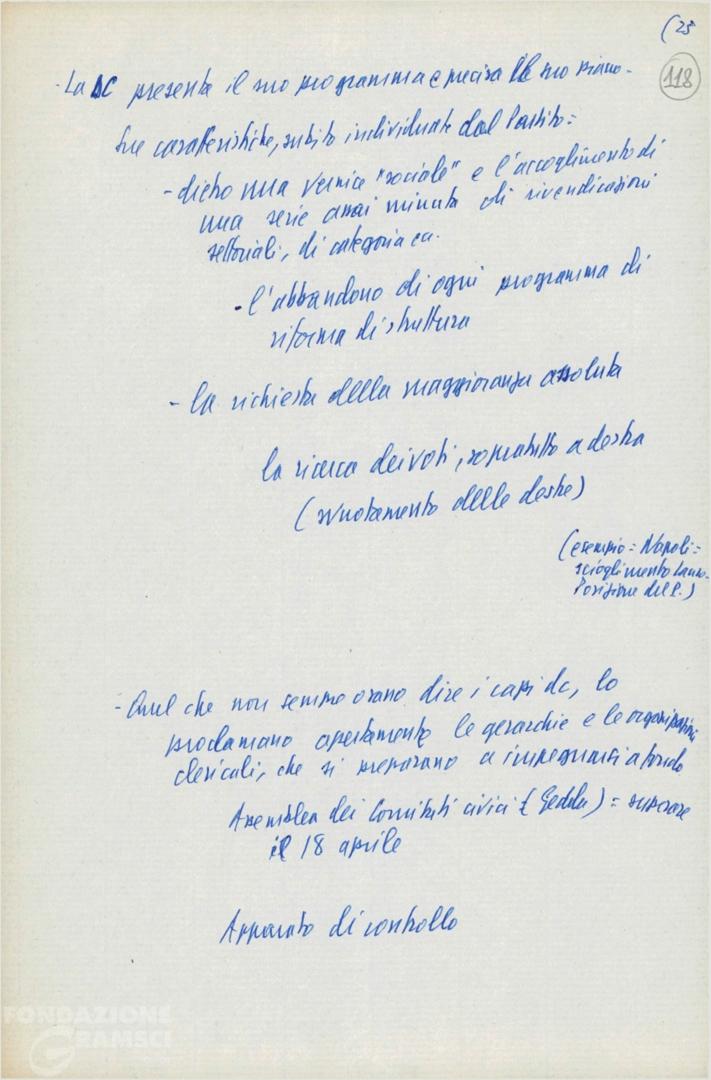 (25
118
- La DC presenta il suo programma e precisa il suo piano -
Sue caratteristiche, subito individuate dal Partito =
- dietro una vernice "sociale" e l'accoglimento di
una serie assai minuta di rivendicazioni
settoriali, di categoria ecc.
- l'abbandono di ogni programma di
riforma di struttura
- la richiesta della maggioranza assoluta
la ricerca dei voti, sopratutto a destra
(svuotamento delle destre)
(esempio = Napoli =
scioglimento Lauro.
Posizione del P.)
- Quel che non sempre osano dire i capi dc, lo
proclamano apertamente le gerarchie e le organizzazioni
clericali, che si preparano a impegnarsi a fondo
Assemblea dei Comitati civici (Gedda) = superare
il 18 aprile
Apparato di controllo
FONDAZIONE
GRAMSCI